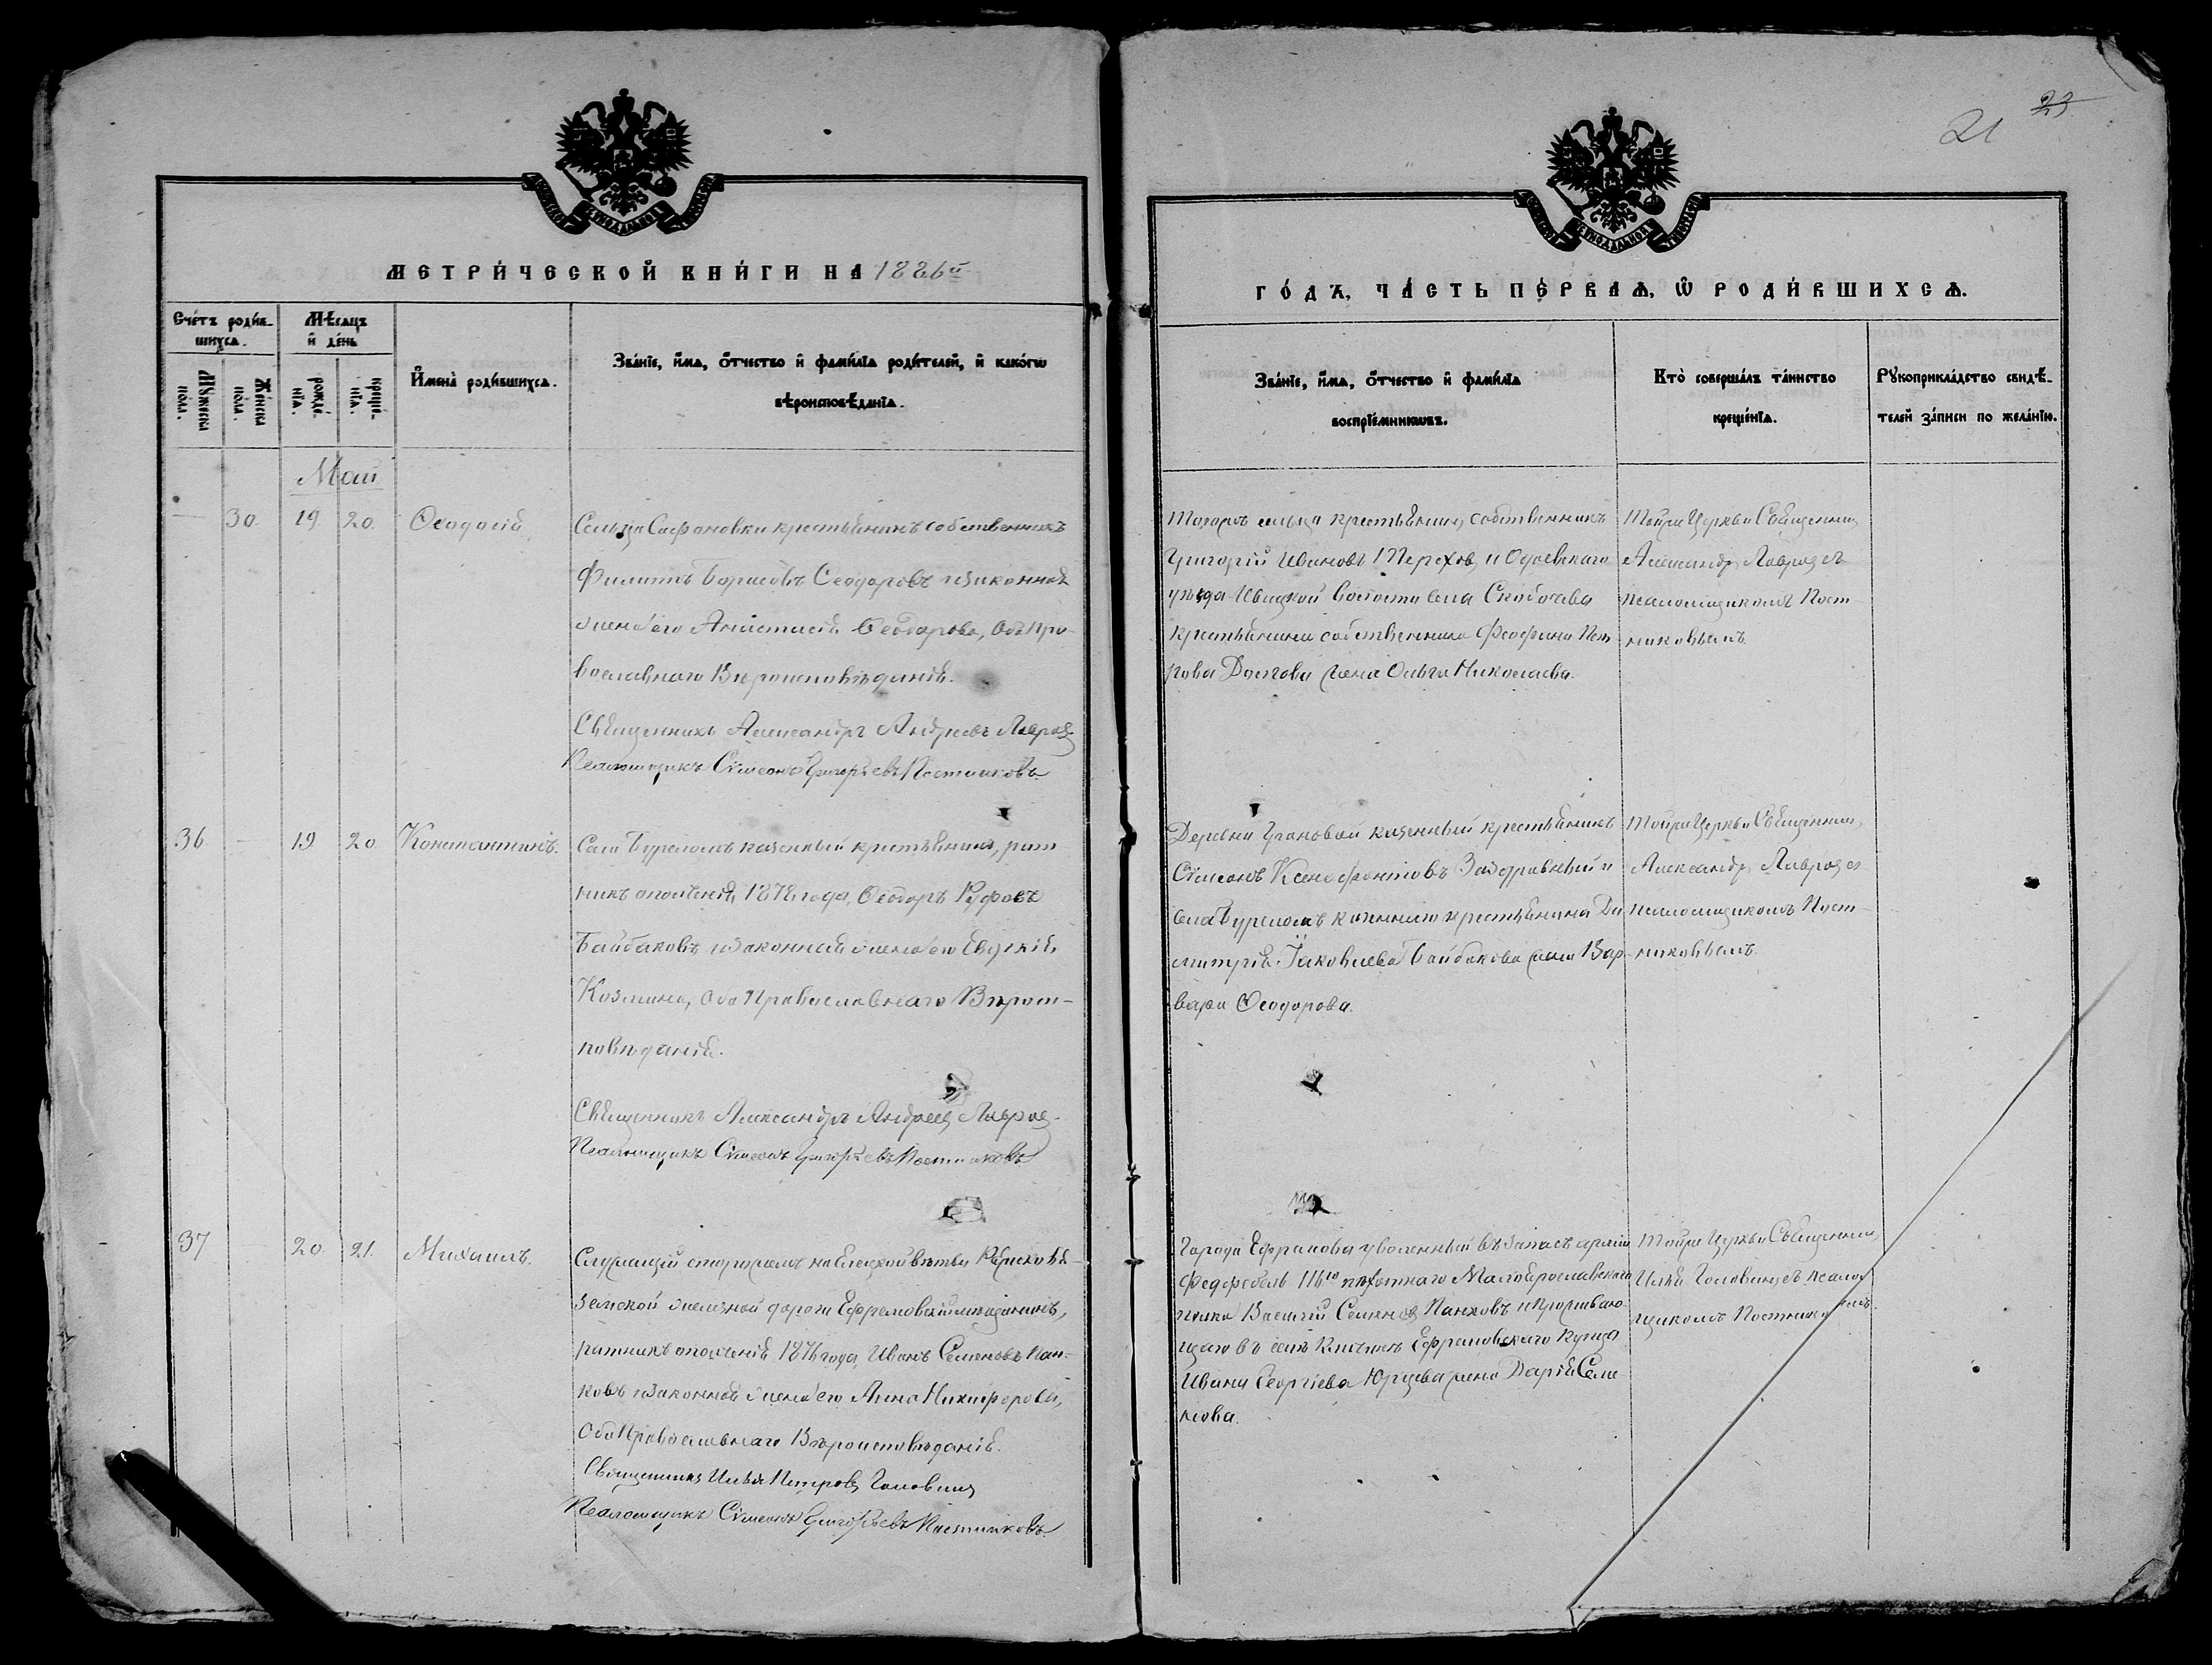 21 23.
МЕТРИ́ЧЕСКОЙ КНИ́ГИ НА 1886й
ГО́ДЪ, ЧА́СТЬ ПЕ́РВАѦ, Ѡ РОДИ́ВШИХСѦ.
Сче́тъ роди́в-
шихсѧ.
Мѣсѧцъ
и де́нь
Мꙋжеска
по́ла.
Же́нска
по́ла.
рожде́-
нїѧ.
креще́-
нїѧ.
И҆мена̀ роди́вшихсѧ.
Зва́нїе, и҆́мѧ, ѻ҆́тчество и҆ фами́лїѧ роди́телей, и҆ како́гѡ
вѣроисповѣ́данїѧ.
Зва́нїе, и҆́мѧ, ѻ҆́тчество и҆ фами́лїѧ
воспрїе́мникѡвъ.
Кто̀ соверша́лъ та́инство
креще́нїѧ.
Рꙋкоприкла́дство свидѣ́-
телей за́писи по жела́нїю.
Май
— 30. 19. 20. Ѳеодосія
Сельца Сафоновки крестьянинъ собственникъ
Филиппъ Борисовъ Ѳеодоровъ и законная
жена его Анастасія Ѳеодорова, оба пра-
вославнаго Вѣроисповѣданія.
Священникъ Александръ Андреевъ Лавровъ
Псаломщикъ Сѵмеонъ Григорьевъ Постниковъ
Тогожъ сельца крестьянинъ собственникъ
Григорій Ивановъ Тереховъ и Одоевскаго
уѣзда Ивицкой Волости села Скобочева
крестьянина собственника Феофана Пет
рова Долгова жена Ольга Николаева.
Тойже Церкви Священникъ
Александръ Лавровъ съ
псаломщикомъ Пост
никовымъ.
36. — 19 20 Константинъ.
Села Буреломъ казенный крестьянинъ, рат
никъ ополченія 1878 года, Ѳеодоръ Руфовъ
Байбаковъ и законная жена его Евдокія
Козмина, оба Православнаго Вѣроис-
повѣданія.
Священникъ Александръ Андреевъ Лавровъ
Псаломщикъ Сѵмеонъ Григорьевъ Постниковъ
Деревни казенный крестьянинъ
Сѵмеонъ Ксенофонтовъ Заздравный и
села Буреломъ казеннаго крестьянина Ди
митрія Іаковлева Байбакова жена Вар-
вара Ѳеодорова.
Тойже Церкви Священникъ,
Александръ Лавровъ съ
псаломщикомъ Пост-
никовымъ.
37 — 20. 21. Михаилъ.
Служащій сторожемъ на Елецкой вѣтви Ряжско Вя-
земской желѣзной дороги Ефремовскій мѣщанинъ,
ратникъ ополченія 1876 года, Иванъ Семеновъ Пан-
ковъ и законная жена его Анна Никифорова,
Оба Православнаго Вѣроисповѣданія.
Священникъ Илья Петровъ Головинъ
Псаломщикъ Сѵмеонъ Григорьевъ Постниковъ
Города Ефремова уволенный въ запасъ арміи
Федфебель 116го пѣхотнаго Малоярославскаго
полка Василій Семеновъ Панковъ и проживаю-
щаго въ селѣ Ефремовскаго Купца
Ивана Георгіева Юрцева жена Дарія Семе
нова.
Тойже Церкви Священникъ,
Илья Головинъ съ псалом
щикомъ Постниковымъ.